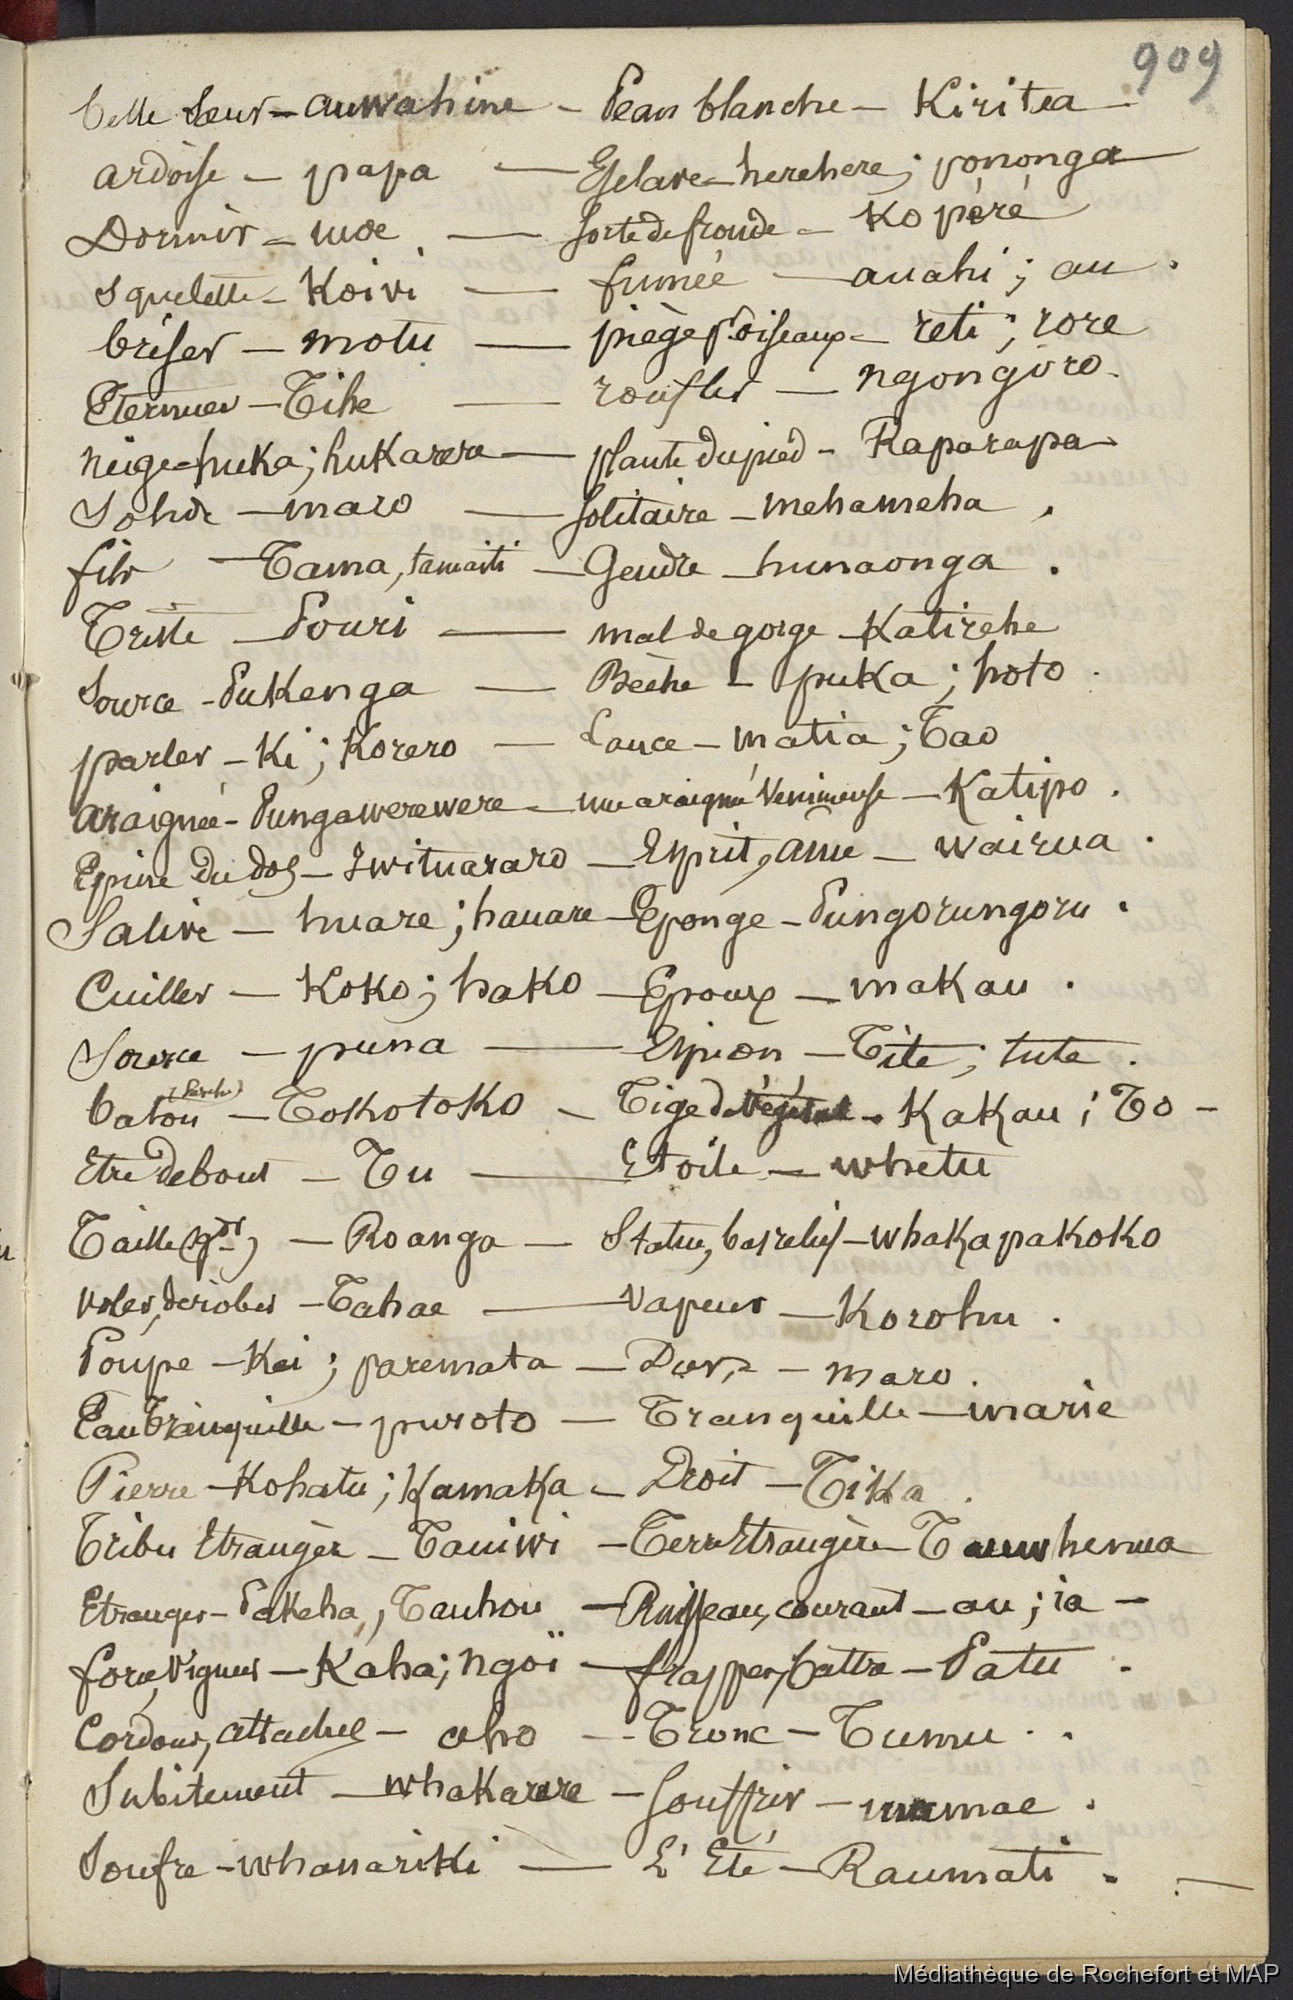 909
belle Sœur - auwahine - Peau blanche - Kiritea -
ardoise - papa - Esclave - herehere; pononga
Dormir - moe. - sorte de fronde - Kopéré
Squelette - Koivi - fumée - auahi; au.
briser - motu - piège d'oiseaux - reti; rore
Eternuer - Tihe - ronfler - ngongoro.
neige - huka; hukarere - plante du pied - Raparapa
Solide - maro - solitaire - mehameha.
fils - Tama, tamaiti - Gendre - hunaonga.
Triste - Pouri - mal de gorge - Katirehe
source - PuKenga - Bèche - puKa; hoto.
parler - Ki; Korero - Lance - matia; Tao
araignée - Pungawerewere - une araignée Venimeuse - Katipo.
Epine du dos - Iwituararo - Esprit, âme - wairua.
Salive - huare; hauare - Eponge - Pungorungoru.
Cuiller - KoKo; haKo - Epoux - maKau.
Source - puna - Espion - Tite; tute.
baton (Perche) - TokotoKo - Tige de végétal - KaKau; To -
Etre debout - Tu - Etoile - whetu
Taille (gdr) - Roanga - Statue, bas relief - whaKapaKoKo
voler, dérober - Tahae - Vapeur - Korohu.
Poupe - Kei; paremata - Dur, - maro.
Eau Tranquille - puroto - Tranquille - marie
Pierre - Kohatu; KamaKa - Droit - TiKa.
Tribu Etrangère - Tauiwi - Terre Etrangère - Tauwhenua
Etranger - PaKeha, Tauhou - Ruisseau, courant - au; ia -
force, Vigueur - Kaha; ngoï - frapper, battre - Patu.
Cordon, attache - aho - Tronc - Tumu..
Subitement - whaKarere - souffrir - mamae.
Soufre - whanariKi - L'Eté - Raumati. -
Médiathèque de Rochefort et MAP